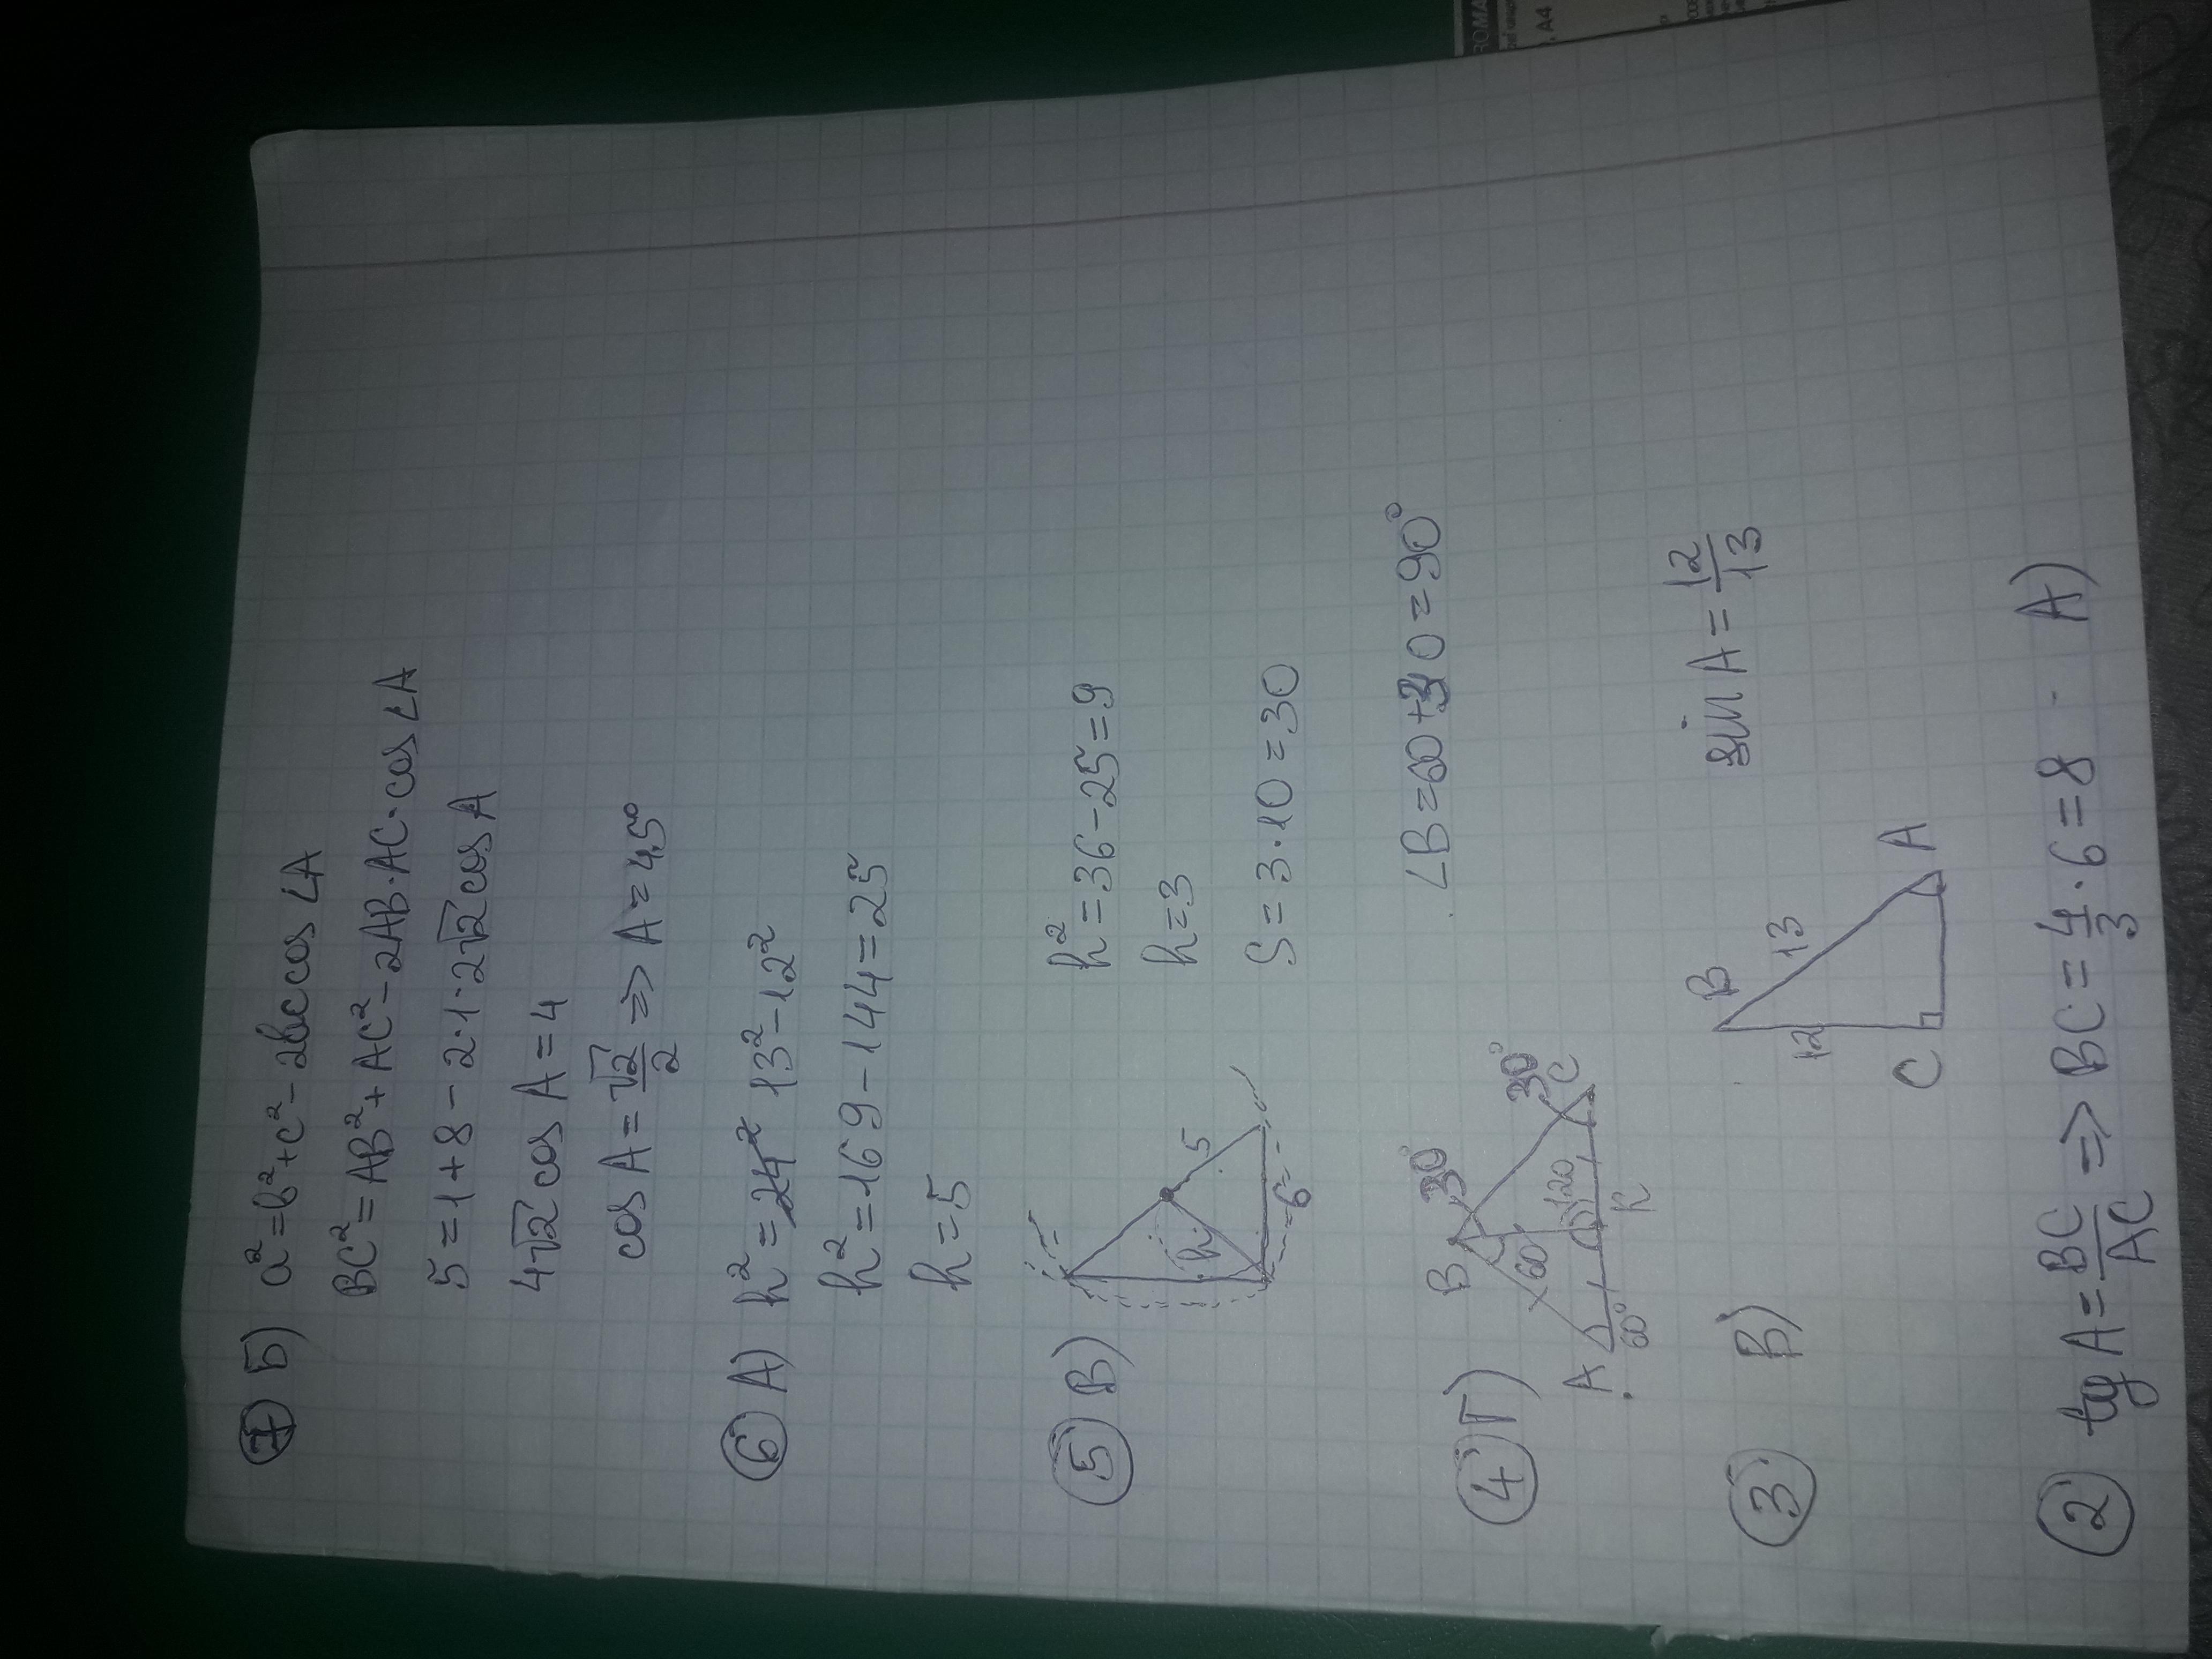 7 Б) a²=b²+c²-2bccos∠A
BC²=AB²+AC²-2AB·AC·cos∠A
5=1+8-2·1·2√2cosA
4√2cosA=4
cosA=√2/2=>A=45°
6 A) h²=24² 13²-12²
h²=169-144=25
h=5
5 В)
5
h
6
h²=36-25=9
h=3
S=3·10=30
4 Г)
B 30°
60
30°
C
A
60°
120
K
∠B=60+30=90°
3 В)
B
12
13
C
A
sinA=12/13
2 tgA=BC/AC=>BC=4/3·6=8 A)
ROMA
A4